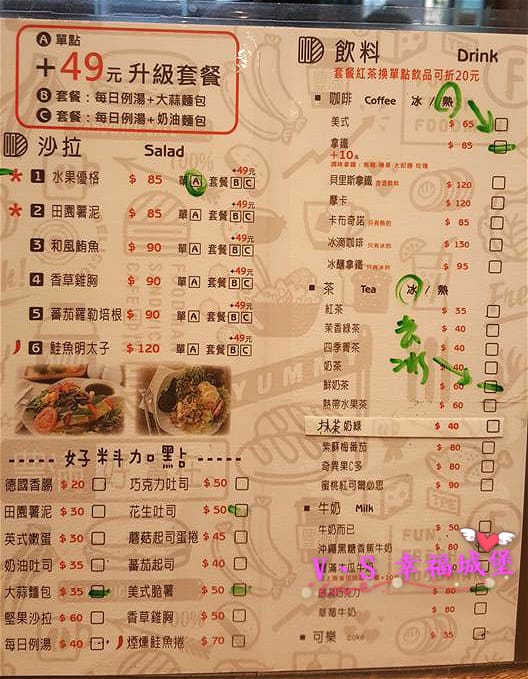 A 單點
+49元 升級套餐
B 套餐：每日例湯+大蒜麵包
C 套餐：每日例湯+奶油麵包
沙拉 Salad
1 水果優格 $ 85 單A 套餐BC +49元
2 田園薯泥 $ 85 單A 套餐BC +49元
3 和風鮪魚 $ 90 單A 套餐BC +49元
4 香草雞胸 $ 90 單A 套餐BC +49元
5 蕃茄羅勒培根 $ 90 單A 套餐BC +49元
6 鮭魚明太子 $ 120 單A 套餐BC +49元
好料加點
德國香腸 $ 20
田園薯泥 $ 30
英式嫩蛋 $ 30
奶油吐司 $ 35
大蒜麵包 $ 35
堅果沙拉 $ 60
每日例湯 $ 40
巧克力吐司 $ 50
花生吐司 $ 50
蘑菇起司蛋捲 $ 45
蕃茄起司 $ 40
美式脆薯 $ 50
香草雞胸 $ 50
煙燻鮭魚捲 $ 70
飲料 Drink
套餐紅茶換單點飲品可折20元
咖啡 Coffee 冰 / 熱
美式 $ 65
拿鐵 $ 85
+10元
貝里斯拿鐵 $ 120
摩卡 $ 120
卡布奇諾 只有熱的 $ 85
冰滴咖啡 只有冰的 $ 130
冰釀拿鐵 只有冰的 $ 95
茶 Tea 冰 / 熱
去冰
紅茶 $ 35
茉香綠茶 $ 40
四季菁茶 $ 40
奶茶 $ 40
鮮奶茶 $ 60
熱帶水果茶 $ 60
抹茶奶綠 $ 40
紫蘇梅番茄 $ 80
奇異果C多 $ 80
蜜桃紅可爾必思 $ 90
牛奶 Milk
牛奶而已 $ 50
沖繩黑糖香蕉牛奶
木瓜牛奶
巧克力 $ 80
草莓牛奶
可樂 Coke $ 35
V~S 幸福城堡